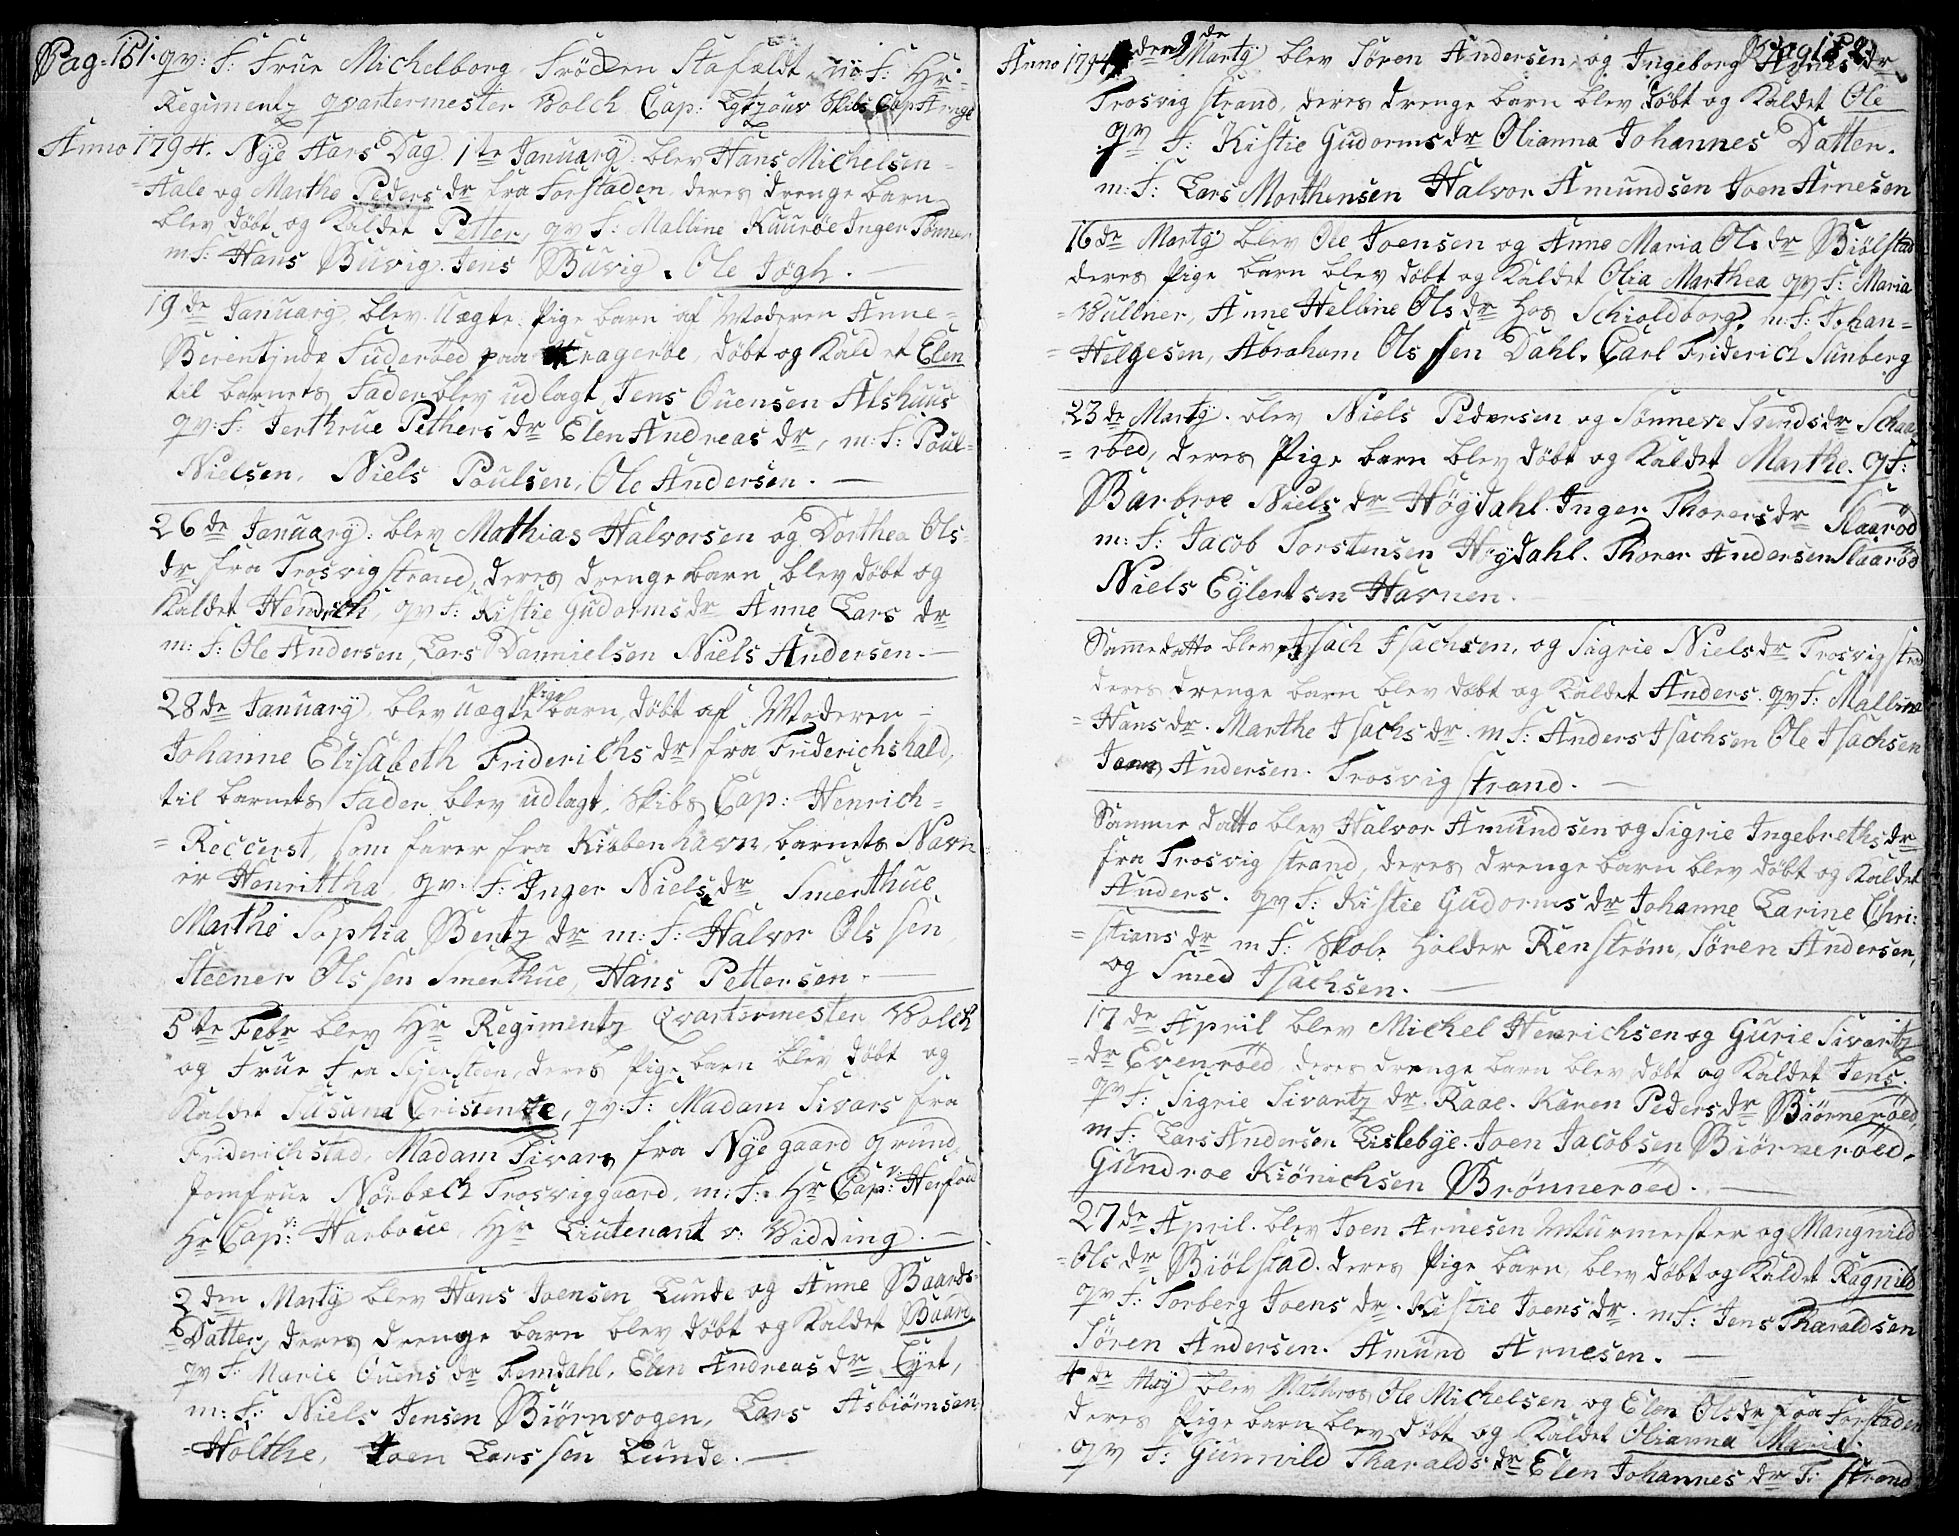 Pag. 151. qv: F: Frue Michelborg Fröcken Stafeldt, m: F: Hr:
Regimentz qvartermester Wolch Cap: Skibs Cap
Anno 1794. Nye Aars Dag 1te January: blev Hans Michelsen
Aale og Marthe Peders dr fra Forstaden, deres drenge barn
blev döbt og Kaldet Petter, qv F: Malline Kauröe Inger Tönner
m F: Hans Buvig. Jens Buvig. Ole Jögh. —
19de January blev Uægte Pige barn af Moderen Anne
Suderöed paa Krageröe, döbt og Kaldet Elen
til barnets Fader blev udlagt, Jens Ouensen Alshuus
qv: F: Jerthrue Pethers dr Elen Andreas dr, m: F: Poul
Nielsen, Niels Poulsen, Ole Andersen. —
26de January: blev Mathias Halvorsen og Dorthea Ols
dr fra Trosvig strand, deres drenge barn blev döbt og
Kaldet Hendrich, qv F: Kistie Gudorms dr Anne Lars dr
m: F: Ole Andersen, Lars Dannielsen Niels Andersen. —
28de January, blev Uægte Pige barn, döbt af Moderen
Johanne Elisabeth Friderichs dr fra Friderichshald,
til barnets Fader blev udlagt, Skibs Cap: Henrich =
= Reccerst, som farer fra Kiöbenhavn, barnets Navn
er Henrittha, qv. F: Inger Niels dr Smerthue
Marthe Sophia Bentz dr m: F: Halvor Ols sen
Steener Ols sen Smerthue, Hans Pettersen. —
5te Febr blev Hr Regimentz Qvartermester Wolch
og Frue Fra deres Pige barn blev döbt og
Kaldet Susana Cristence, qv: F: Madam Sivars fra
Friderichstad, Madam Sivars fra Nyegaard grund,
Jomfrue Nörbech Trosviggaard, m: F: Hr Cap: v:
Hr Cap: v: Harboue, Hr Liutenant v: Widding. —
2den Marty blev Hans Joensen Lunde og Anne Baards
Datter, deres drenge barn blev döbt og Kaldet Baard
qv F: Marie Ouens dr Femdahl, Elen Andreas dr Lyet,
m: F: Niels Jensen Biörnvogen, Lars Asbiörnsen
Holthe, Joen Lars sen Lunde. —
Pag 152
Anno 1794 den 9de Marty blev Sören Andersen, og Ingeborg Arnes dr
Trosvig strand, deres drenge barn blev döbt og Kaldet Ole
qv F: Kistie Gudorms dr Olianna Johannes Datter.
m: F: Lars Morthensen Halvor Amundsen Joen Arnesen
16de Marty blev Ole Joensen og Anne Maria Ols dr Biölstad
deres Pige barn blev döbt og Kaldet Olia Marthea qv F: Maria
= Wullner, Anne Helline Ols dr hos Schioldborg, m: F: Johan =
= Helgesen, Abraham Ols sen Dahl. Carl Friderich Sunberg
23de Marty. blev Niels Pedersen og Sönneve Svends dr Schaa
= röed, deres Pige barn blev döbt og Kaldet Marthe. q F:
Barbroe Niels dr Högdahl. Inger Thorers dr Slaaröd
m: F: Jacob Torstensen Högdahl. Thorer Andersen Slaaröd
Niels Eylertsen Havnen.
Samme datto blev Isach Isachsen, og Sigrie Niels dr Trosvig strand
deres drenge barn blev döbt og Kaldet Anders. qv F: Malline
= Hans dr. Marthe Isachs dr. m F: Anders Isachsen Ole Isachsen
Jens Andersen. Trosvig strand. —
Samme datto blev Halvor Amundsen og Sigrie Ingebreths dr
fra Trosvig strand, deres drenge barn blev döbt og Kaldet
Anders. qv F: Kistie Gudorms dr Johanne Carine Chri:
= stians dr m F: Skole holder Renström, Sören Andersen,
og Smed Isachsen. —
17de April blev Michel Henrichsen og Gurie Sivartz
= dr Evenröed, deres drenge barn blev döbt og Kaldet Jens.
qv F: Sigrie Sivartz dr. Raae. Karen Peders dr Biörneröed,
m F: Lars Andersen Lislebye. Joen Jacobsen Biörneröed.
Gundroe Kiönichsen Brönneröed. —
27de April. blev Joen Arnesen Muurmester og Mangnild
= Ols dr Biölstad. deres Pige barn, blev döbt og Kaldet Ragnild
qv F: Torberg Joens dr. Kistie Joens dr. m F: Jens Tharaldsen
Sören Andersen. Amund Arnesen. —
4de May blev Mathros Ole Michelsen og Elen Ols dr fra Forstaden
deres Pige barn blev döbt og Kaldet Olianna Maria.
qv F: Gunnild Tharalds dr Elen Johannes dr T: strand